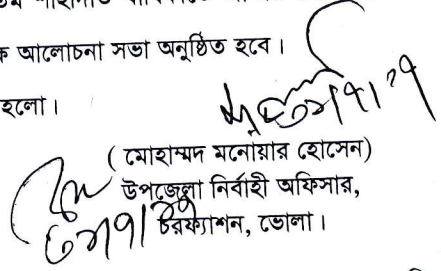 ক আলোচনা সভা অনুষ্ঠিত হবে।
হলো।
( মোহাম্মদ মনোয়ার হোসেন)
উপজেলা নির্বাহী অফিসার,
চরফ্যাশন, ভোলা।